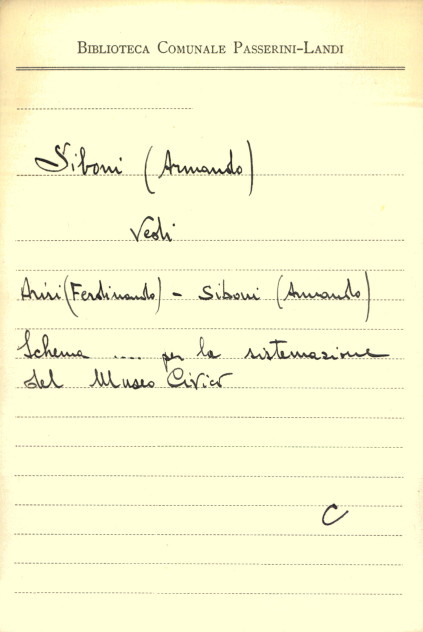 BIBLIOTECA COMUNALE PASSERINI-LANDI
Siboni (Armando)
Vedi
Arisi (Ferdinando) - Siboni (Armando)
Schema .... per la sistemazione
del Museo Civico
C